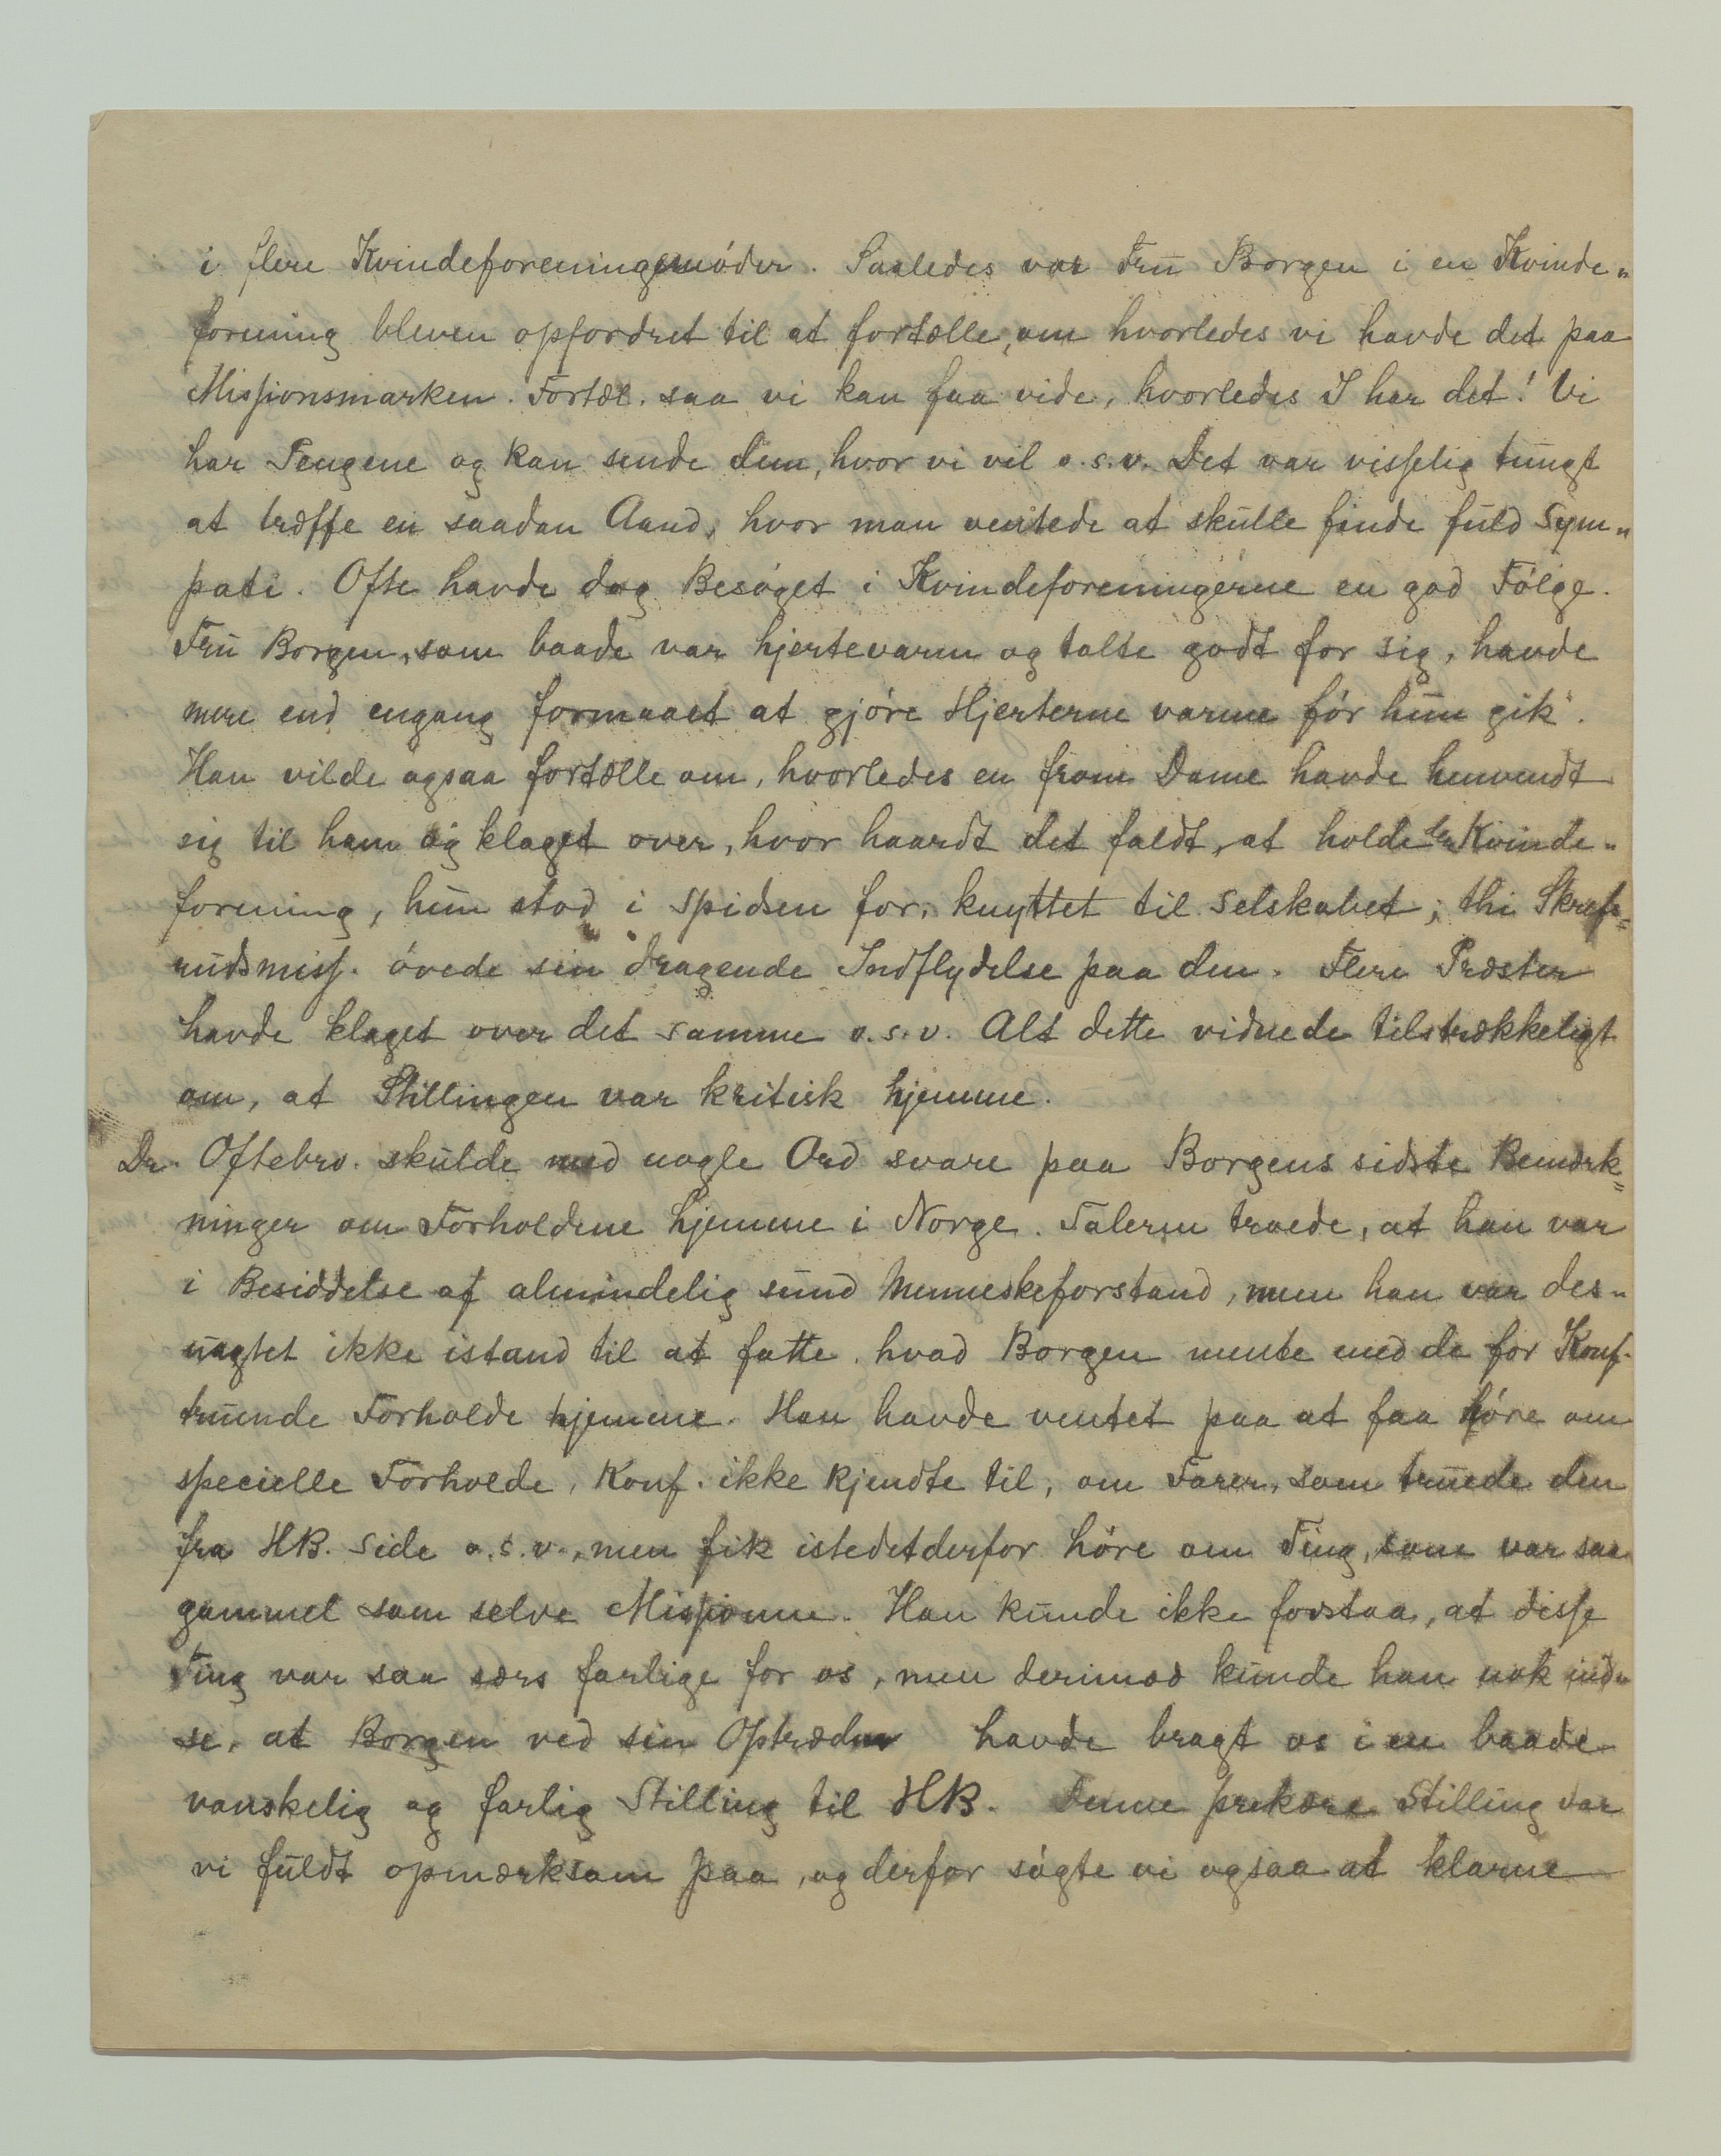 i flere Kvindeforeningsmöder. Saaledes var Fru Borgen i en Kvinde„
forening bleven opfordret til at fortælle, om hvorledes vi havde det paa
Missionsmarken. Fortæl. saa vi kan faa vide, hvorledes I har det! Vi
har Pengene og kan sende dem, hvor vi vil o.s.v. Det var visselig tungt
at træffe en saadan Aand, hvor man ventede at skulle finde fuld Sym„
pati. Ofte havde dog Besöget i Kvindeforeningerne en god Fölge.
Fru Borgen, som baade var hjertevarm og talte godt for sig, havde
mere end engang formaaet at gjöre Hjerterne varme för hun gik.
Han vilde ogsaa fortælle om, hvorledes en from Dame havde henvendt
sig til ham og klaget over, hvor haardt det faldt, at holde den Kvinde„
forening, hun stod i Spidsen for, knyttet til Selskabet; thi Skrefs=
rudsmiss. övede sin dragende Indflydelse paa den. Flere Præster
havde klaget over det samme o.s.v. Alt dette vidnede tilstrækkeligt
om, at Stillingen var kritisk hjemme.
Dr. Oftebro. skulde med nogle Ord svare paa Borgens sidste Bemærk=
ninger om Forholdene hjemme i Norge. Taleren troede, at han var
i Besiddelse af almindelig sund Menneskeforstand, men han var des„
uagtet ikke istand til at fatte, hvad Borgen mente med de for Konf.
truende Forholde hjemme. Han havde ventet paa at faa höre om
specielle Forholde, Konf. ikke kjendte til, om Farer, som truede den
fra HB. Side o.s.v., men fik istedetderfor höre om Ting, som var saa
gammel som selve Missionen. Han kunde ikke forstaa, at disse
Ting var saa særs farlige for os, men derimod kunde han nok ind„
se, at Borgen ved sin Optræden havde bragt os i en baade
vanskelig og farlig Stilling til HB. Denne prekære Stilling var
vi fuldt opmærksom paa, og derfor sögte vi ogsaa at klarne